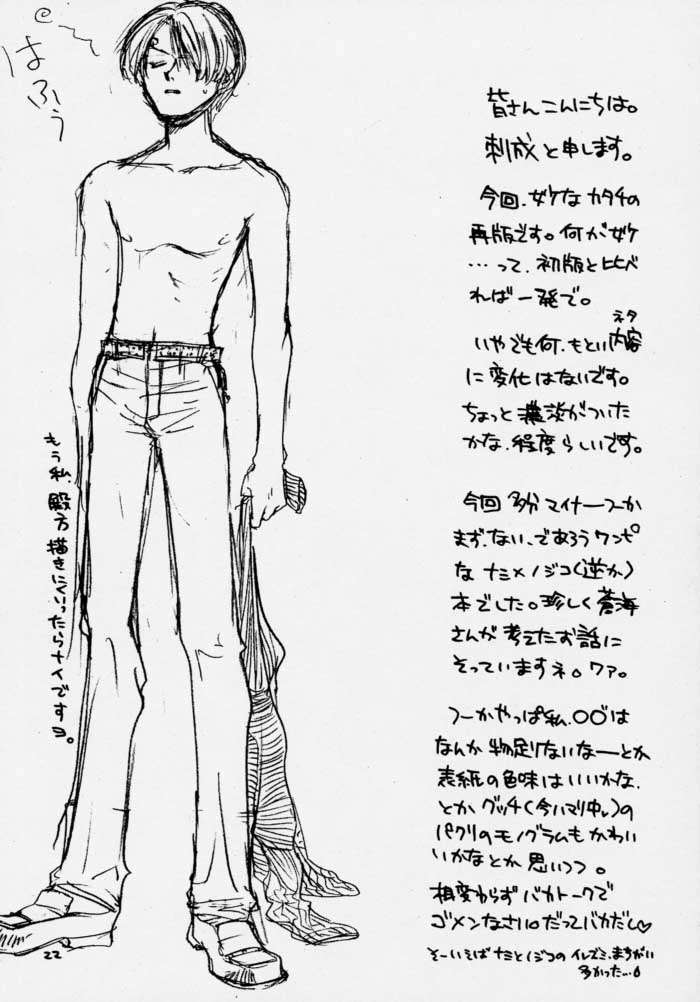 はふぅ
皆さんこんにちは。
刺成と申します。
今回、妙ケなカタチの
再版です。何が妙ケ
…って、初版と比べ
れば一発で。
ネタ
いやでも何、もとい内容
に変化はないです。
ちょっと濃淡がついた
かな、程度らしいです。
今回多分マイナーつーか
まず、ない、であろうワンピ
なナミ×ノジコ(逆か)
本でした。珍しく蒼海
さんが考えたお話に
そっていますネ。ワァ。
つーかやっぱ私、〇〇じは
なんか物足りないなーとか
表紙の色味はいいかな、
とかグッチ(今ハマリ中し)の
パクリのモノグラムもかわい
いかなとか思いつつ。
相変わらずバカトークで
ゴメンなさい。だってバカだし♡
そーいえばナミとノジコのイレズミ、まちがい
多かった…
もう私、殿方描きにくいったらナイですヨ。
22